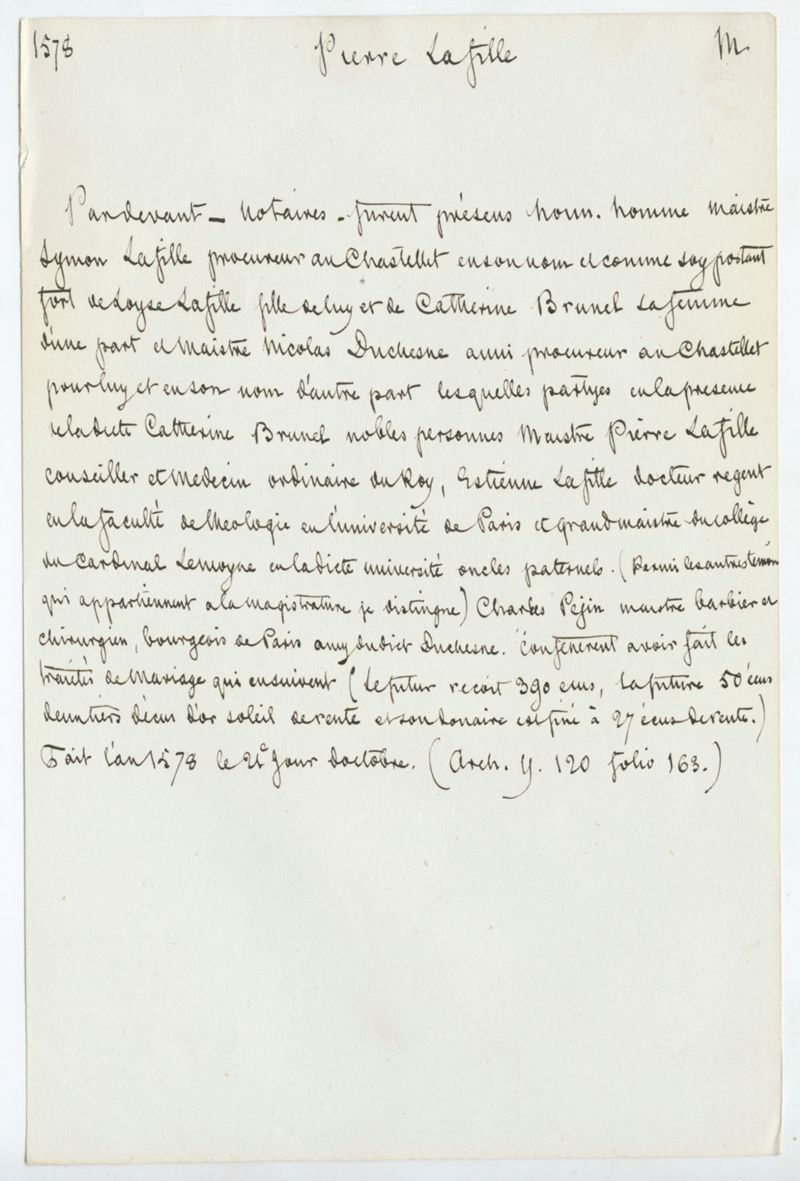 1578 Pierre Lafille M
Pardevant _ notaires - furent présens honn. homme maistre
Symon Lafille procureur au Chastellet en son nom et comme soy portant
fort de Loyse Lafille fille de luy et de Catherine Brunel sa femme
d'une part et Maistre Nicolas Duchesne aussi procureur au Chastellet
pour luy et en son nom d'autre part lesquelles partyes en la presence
de ladicte Catherine Brunel nobles personnes Maistre Pierre Lafille
conseiller et Medecin ordinaire du Roy, Estienne Lafille docteur regent
en la faculté de theologie en l'université de Paris et grand maistre du collège
du Cardinal Lemoyne en ladicte université oncles paternels. (Parmi les autres témoins
qui appartiennent a la magistrature je distingue) Charles Pejin maistre barbier et
chirurgien, bourgeois de Paris amy dudict Duchesne. Confessèrent avoir fait les
traités de Mariage qui ensuivent (Le futur recoit 390 ecus, la future 50 écus
deux tiers d'écus d'or soleil de rente et son douaire est fixé à 27 écus de rente.)
Fait l'an 1578 le 21e jour doctobre. (Arch. y. 120 folio 163.)